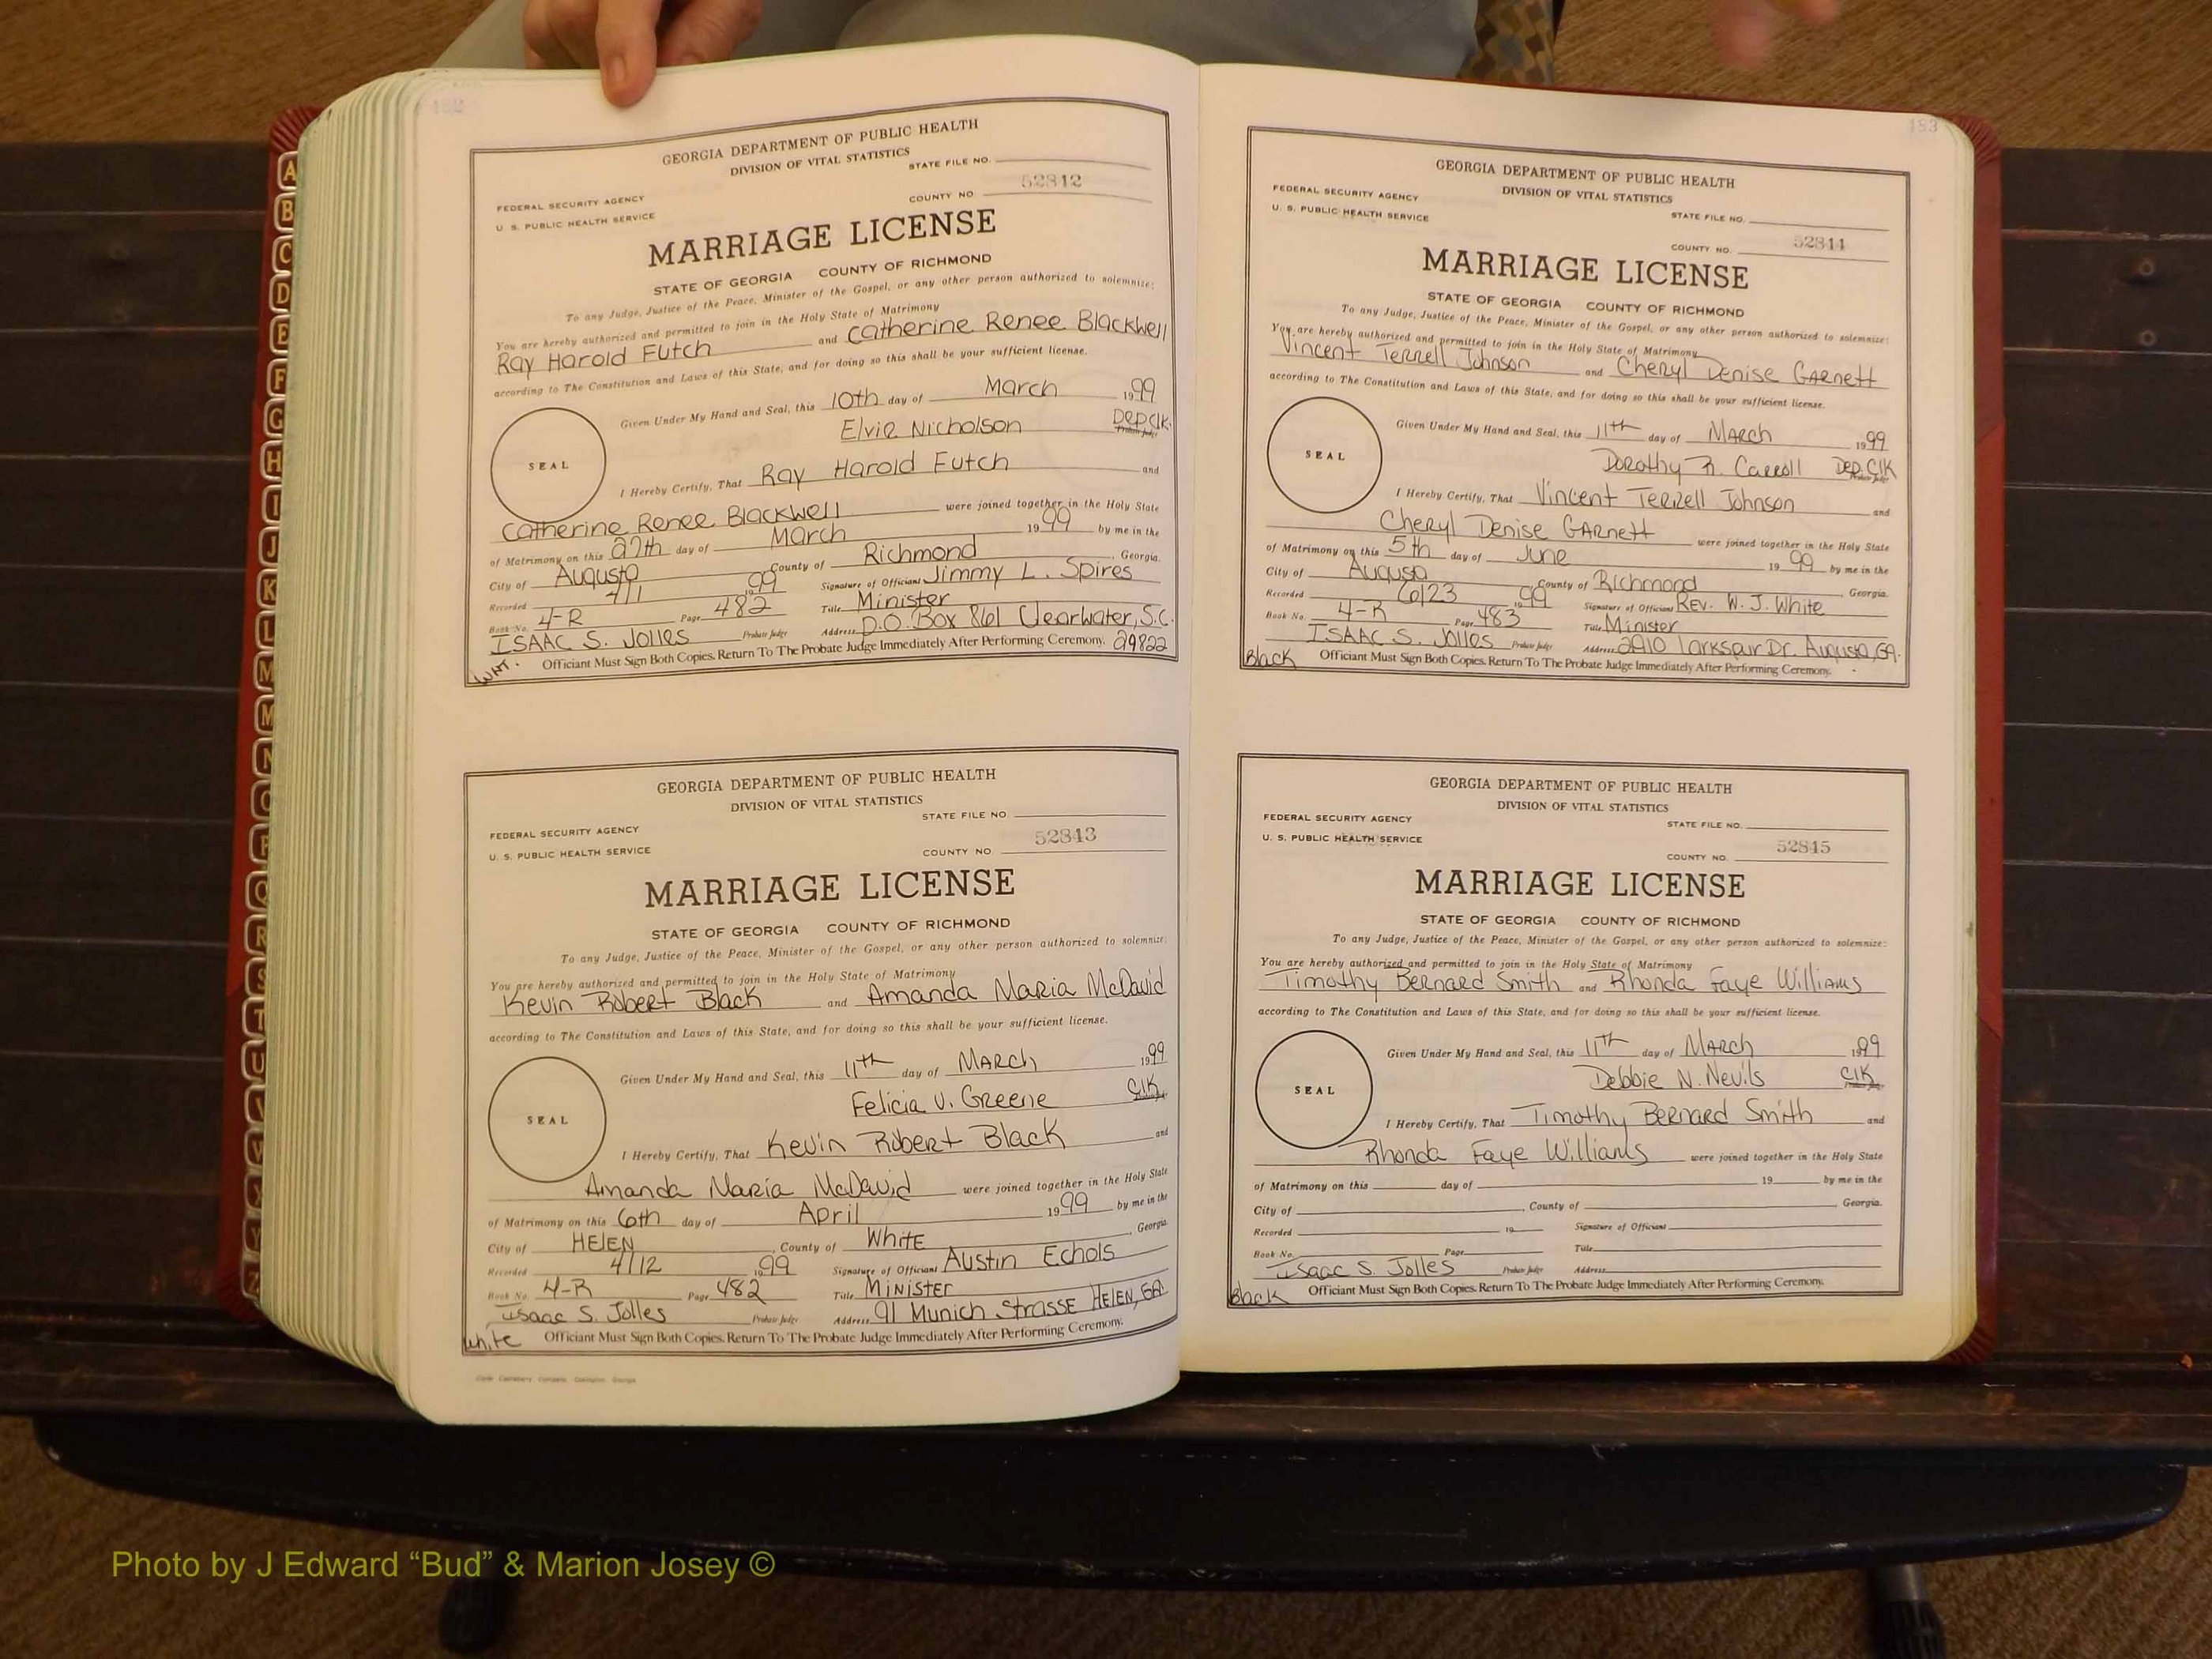 182
GEORGIA DEPARTMENT OF PUBLIC HEALTH
DIVISION OF VITAL STATISTICS
STATE FILE NO.
FEDERAL SECURITY AGENCY
COUNTY NO 52842
U. S. PUBLIC HEALTH SERVICE
MARRIAGE LICENSE
STATE OF GEORGIA COUNTY OF RICHMOND
To any Judge, Justice of the Peace, Minister of the Gospel, or any other person authorized to solemnize:
You are hereby authorized and permitted to join in the Holy State of Matrimony
Ray Harold Futch and Catherine Renee Blackwell
according to The Constitution and Laws of this State, and for doing so this shall be your sufficient license.
Given Under My Hand and Seal, this 10th day of March 1999
Elvie Nicholson Dep Clk.
SEAL
I Hereby Certify, That Ray Harold Futch and
Catherine Renee Blackwell were joined together in the Holy State
of Matrimony on this 27th day of March 1999 by me in the
City of Augusta County of Richmond, Georgia.
Recorded 4/1 1999 Signature of Officiant Jimmy L. Spires
Book No. 4-R Page 482 Title Minister
ISAAC S. JOLLES Probate Judge Address P.O. Box 861 Clearwater, S.C.
WHT. Officiant Must Sign Both Copies. Return To The Probate Judge Immediately After Performing Ceremony. 29822
GEORGIA DEPARTMENT OF PUBLIC HEALTH
DIVISION OF VITAL STATISTICS
STATE FILE NO.
FEDERAL SECURITY AGENCY
COUNTY NO. 52843
U. S. PUBLIC HEALTH SERVICE
MARRIAGE LICENSE
STATE OF GEORGIA COUNTY OF RICHMOND
To any Judge, Justice of the Peace, Minister of the Gospel, or any other person authorized to solemnize:
You are hereby authorized and permitted to join in the Holy State of Matrimony
Kevin Robert Black and Amanda Maria McDavid
according to The Constitution and Laws of this State, and for doing so this shall be your sufficient license.
Given Under My Hand and Seal, this 11th day of MARCH 1999
Felicia V. Greene Clk
SEAL
I Hereby Certify, That Kevin Robert Black and
Amanda Maria McDavid were joined together in the Holy State
of Matrimony on this 6th day of April 1999 by me in the
City of HELEN, County of White, Georgia
Recorded 4/12 1999 Signature of Officiant Austin Echols
Book No. 4-R Page 482 Title MINISTER
Isaac S. Jolles Probate Judge Address 91 Munich Strasse HELEN, GA.
White Officiant Must Sign Both Copies. Return To The Probate Judge Immediately After Performing Ceremony.
183
GEORGIA DEPARTMENT OF PUBLIC HEALTH
DIVISION OF VITAL STATISTICS
FEDERAL SECURITY AGENCY
STATE FILE NO.
U. S. PUBLIC HEALTH SERVICE
COUNTY NO. 52844
MARRIAGE LICENSE
STATE OF GEORGIA COUNTY OF RICHMOND
To any Judge, Justice of the Peace, Minister of the Gospel, or any other person authorized to solemnize:
You are hereby authorized and permitted to join in the Holy State of Matrimony
Vincent Terrell Johnson and Cheryl Denise Garnett
according to The Constitution and Laws of this State, and for doing so this shall be your sufficient license.
Given Under My Hand and Seal, this 11th day of MARCH 1999
Dorothy R. Carroll Dep. Clk
SEAL
I Hereby Certify, That Vincent Terrell Johnson and
Cheryl Denise Garnett were joined together in the Holy State
of Matrimony on this 5th day of June 1999 by me in the
City of Augusta County of Richmond, Georgia.
Recorded 6/23 1999 Signature of Officiant Rev. W. J. White
Book No. 4-R Page 483 Title Minister
ISAAC S. Jolles Probate Judge Address 2910 Larkspur Dr. Augusta, GA.
Black Officiant Must Sign Both Copies. Return To The Probate Judge Immediately After Performing Ceremony.
GEORGIA DEPARTMENT OF PUBLIC HEALTH
DIVISION OF VITAL STATISTICS
FEDERAL SECURITY AGENCY
STATE FILE NO.
U. S. PUBLIC HEALTH SERVICE
COUNTY NO. 52845
MARRIAGE LICENSE
STATE OF GEORGIA COUNTY OF RICHMOND
To any Judge, Justice of the Peace, Minister of the Gospel, or any other person authorized to solemnize:
You are hereby authorized and permitted to join in the Holy State of Matrimony
Timothy Bernard Smith and Rhonda Faye Williams
according to The Constitution and Laws of this State, and for doing so this shall be your sufficient license.
Given Under My Hand and Seal, this 11th day of MARCH 1999
Debbie N. Nevils Clk
SEAL
I Hereby Certify, That Timothy Bernard Smith and
Rhonda Faye Williams were joined together in the Holy State
of Matrimony on this day of 19 by me in the
City of , County of , Georgia.
Recorded 19 Signature of Officiant
Book No. Page Title
Isaac S. Jolles Probate Judge Address
Black Officiant Must Sign Both Copies. Return To The Probate Judge Immediately After Performing Ceremony.
A
B
C
D
E
F
G
H
I
J
K
L
M
M
N
O
P
Q
R
S
T
U
V
W
X
Y
Z
Photo by J Edward “Bud” & Marion Josey ©